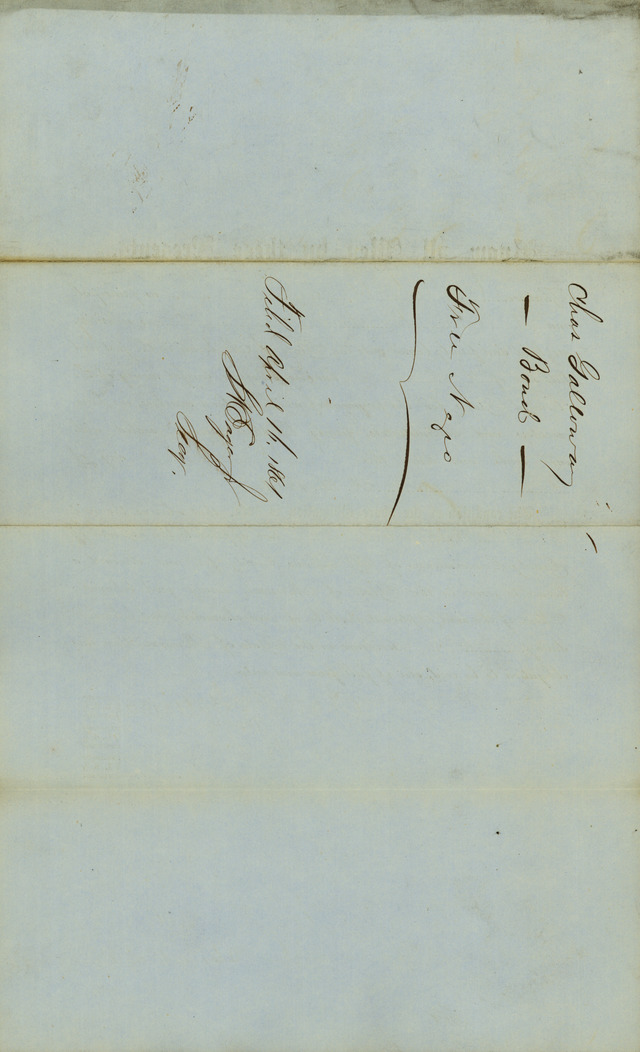 Chas Galloway
— Bond —
Free Negro
Filed April 16, 1861